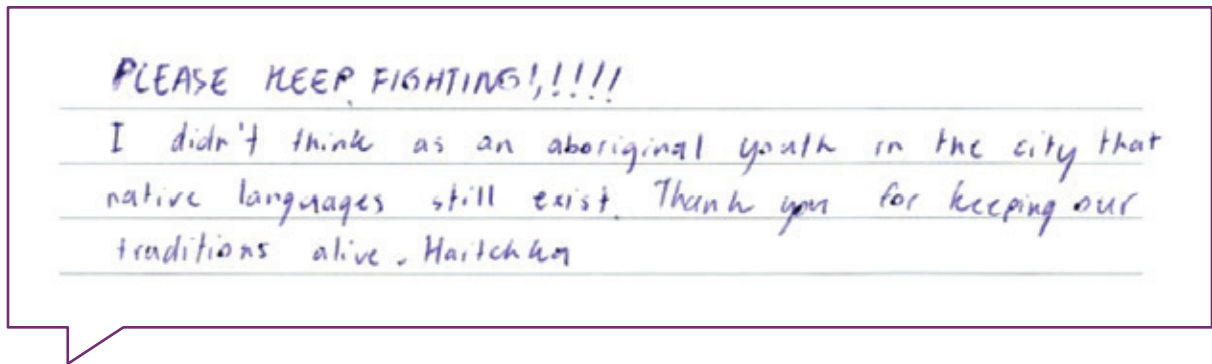 PLEASE KEEP FIGHTING!,!!!!
I didn't think as an aboriginal youth in the city that
native languages still exist. Thank you for keeping our
traditions alive. Haitchka